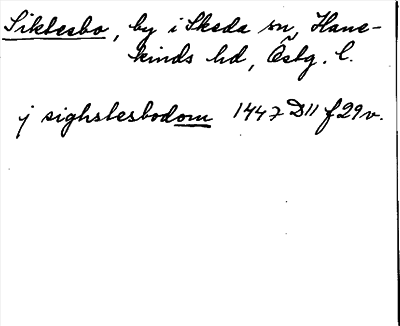 Siktesbo, by i Skeda sn, Hane-
kinds hd, Östg. l.
j sighstesbodom 1447 D11 f 29v.